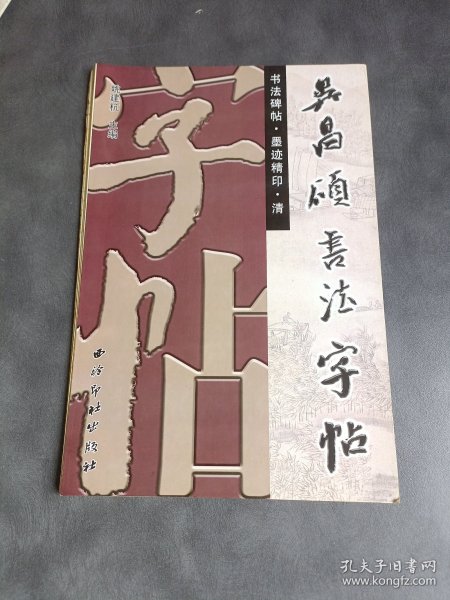 吴昌硕书法字帖
书法碑帖·墨迹精印·清
字帖
姚建杭 主编
西泠印社出版社
孔夫子旧书网
www.kongfz.com